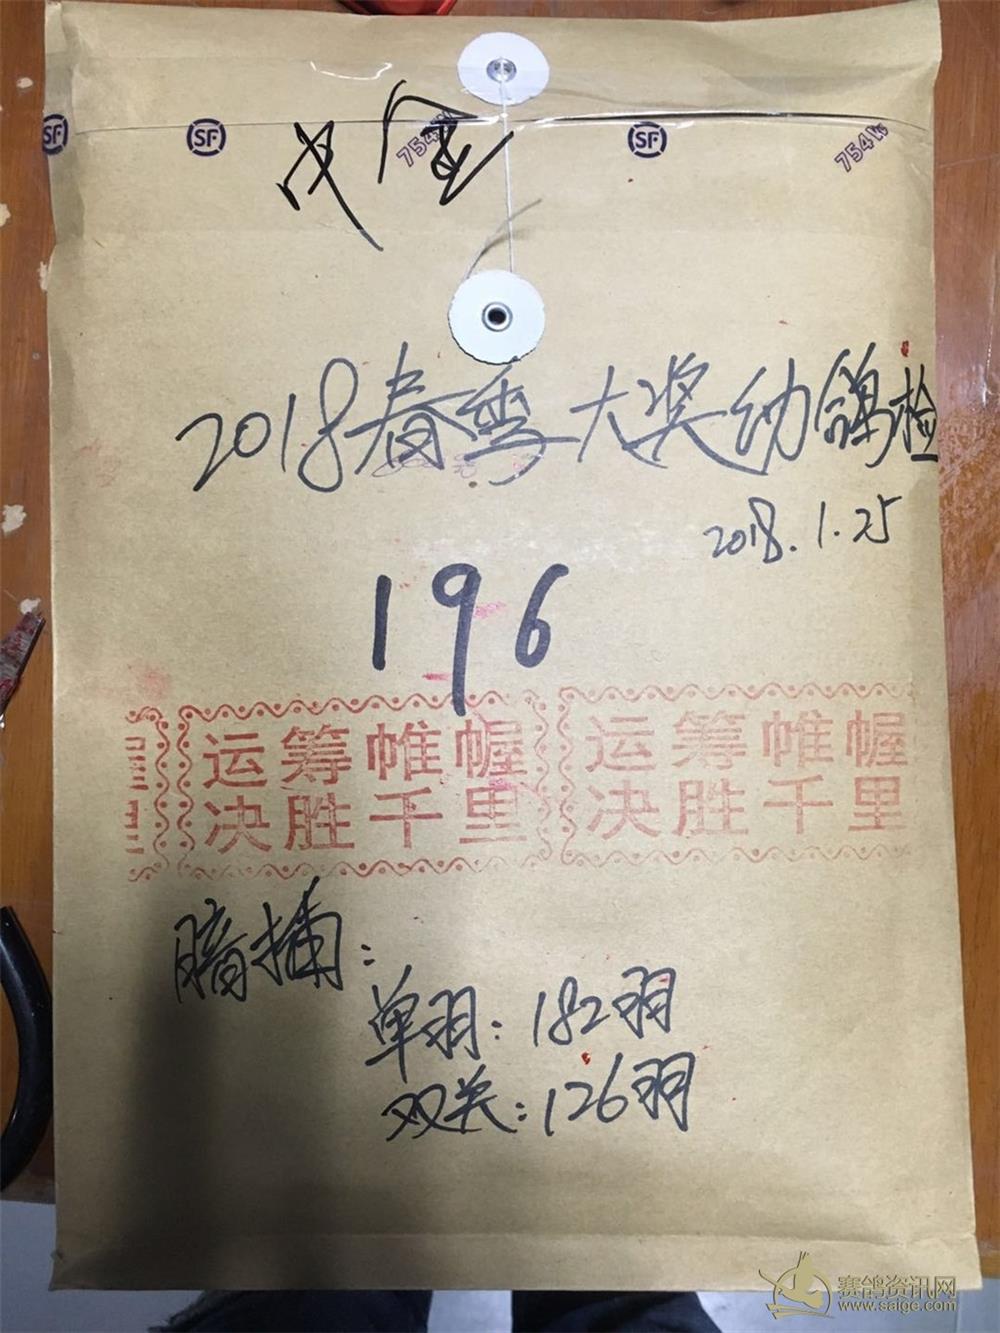 SF
SF
SF
754W
754W
中金
2018春季大奖幼鸽检
2018.1.25
196
运筹帷幄
决胜千里
运筹帷幄
决胜千里
暗插:
单羽:182羽
双关:126羽
赛鸽资讯网
www.saige.com